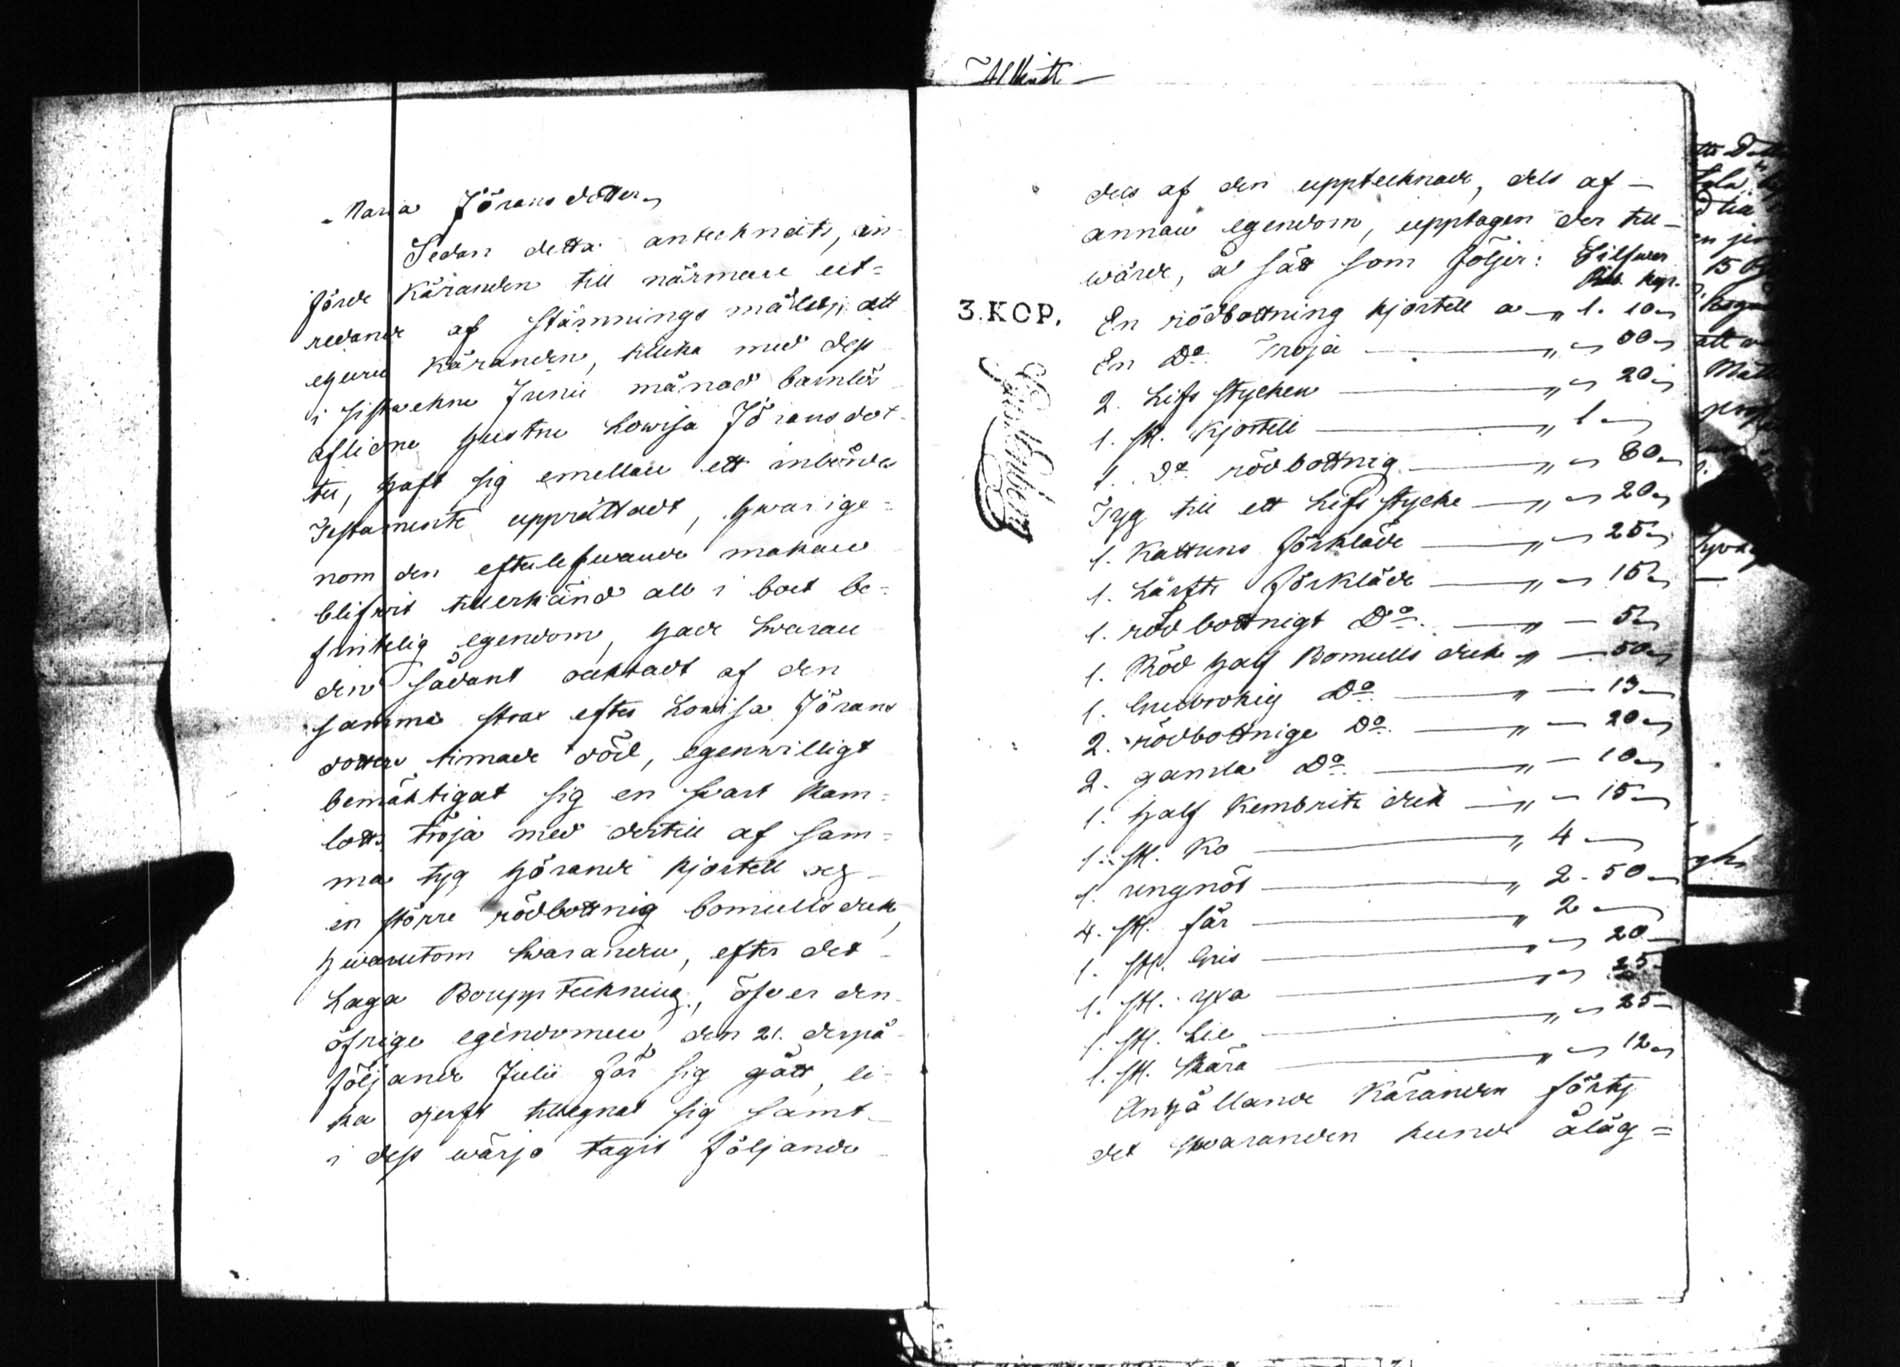 Maria Jöransdotter
Sedan detta antecknats, an-
förde Käranden till närmare ut-
redande af stämnings målet, att
eguru Käranden, tillika med dess
i sistwekne Junii månad barnlös
aflidne hustru Lowisa Jöransdot-
ter, haft sig emellan ett inbördes
Testamente upprättadt, hwarige-
nom den efterlefwande makan
blifwit tillerkänd all i boet be-
fintelig egendom, hade Swaran-
den sådant oaktadt af den
samma strax efter Lowisa Jörans
dotters timade död, egenwilligt
bemäktigat sig en swart Kam-
lotts tröja med dertill af sam-
ma tyg hörande kjortell och
en större rödbottnig bomullsduk,
hwarutom Swaranden, efter det
Laga Bouppteckning, öfver den
öfrige egendomen, den 21. derpå
följande Julii för sig gått, li-
ka djerft tillegnat sig samt
i dess wärjo tagit följande
dels af den upptecknade, dels af
annan egendom, upptagen der till
wärde, å sätt som följer: Silfwer
Rub. kop.
3.KOP.
En rödbottning kjortell a „ 1. 10
En Do Tröja „ 00
2. Lifs stycken „ 20
1. st. Kjortell „ 1
1. Do rödbottnig „ 80
Tyg till ett Lifs stycke „ 20
1. Kattuns förkläde „ 25
1. Lärfts förkläde „ 15
1. rödbottnigt Do „ 5
1. Röd half Bomulls duk „ 50
1. Do „ 13
2. rödbottnige Do „ 20
2. gamla Do „ 10
1. half Kembriks duk „ 15
1. st. Ko „ 4
1. ungnöt „ 2. 50
4. st. får „ 2
1. st. Gris „ 20
1. st. yxa „ 25
1. st. Lie „ 25
1. st. Skära „ 12
Anhållande Käranden förty
det Swaranden kunde åläg=